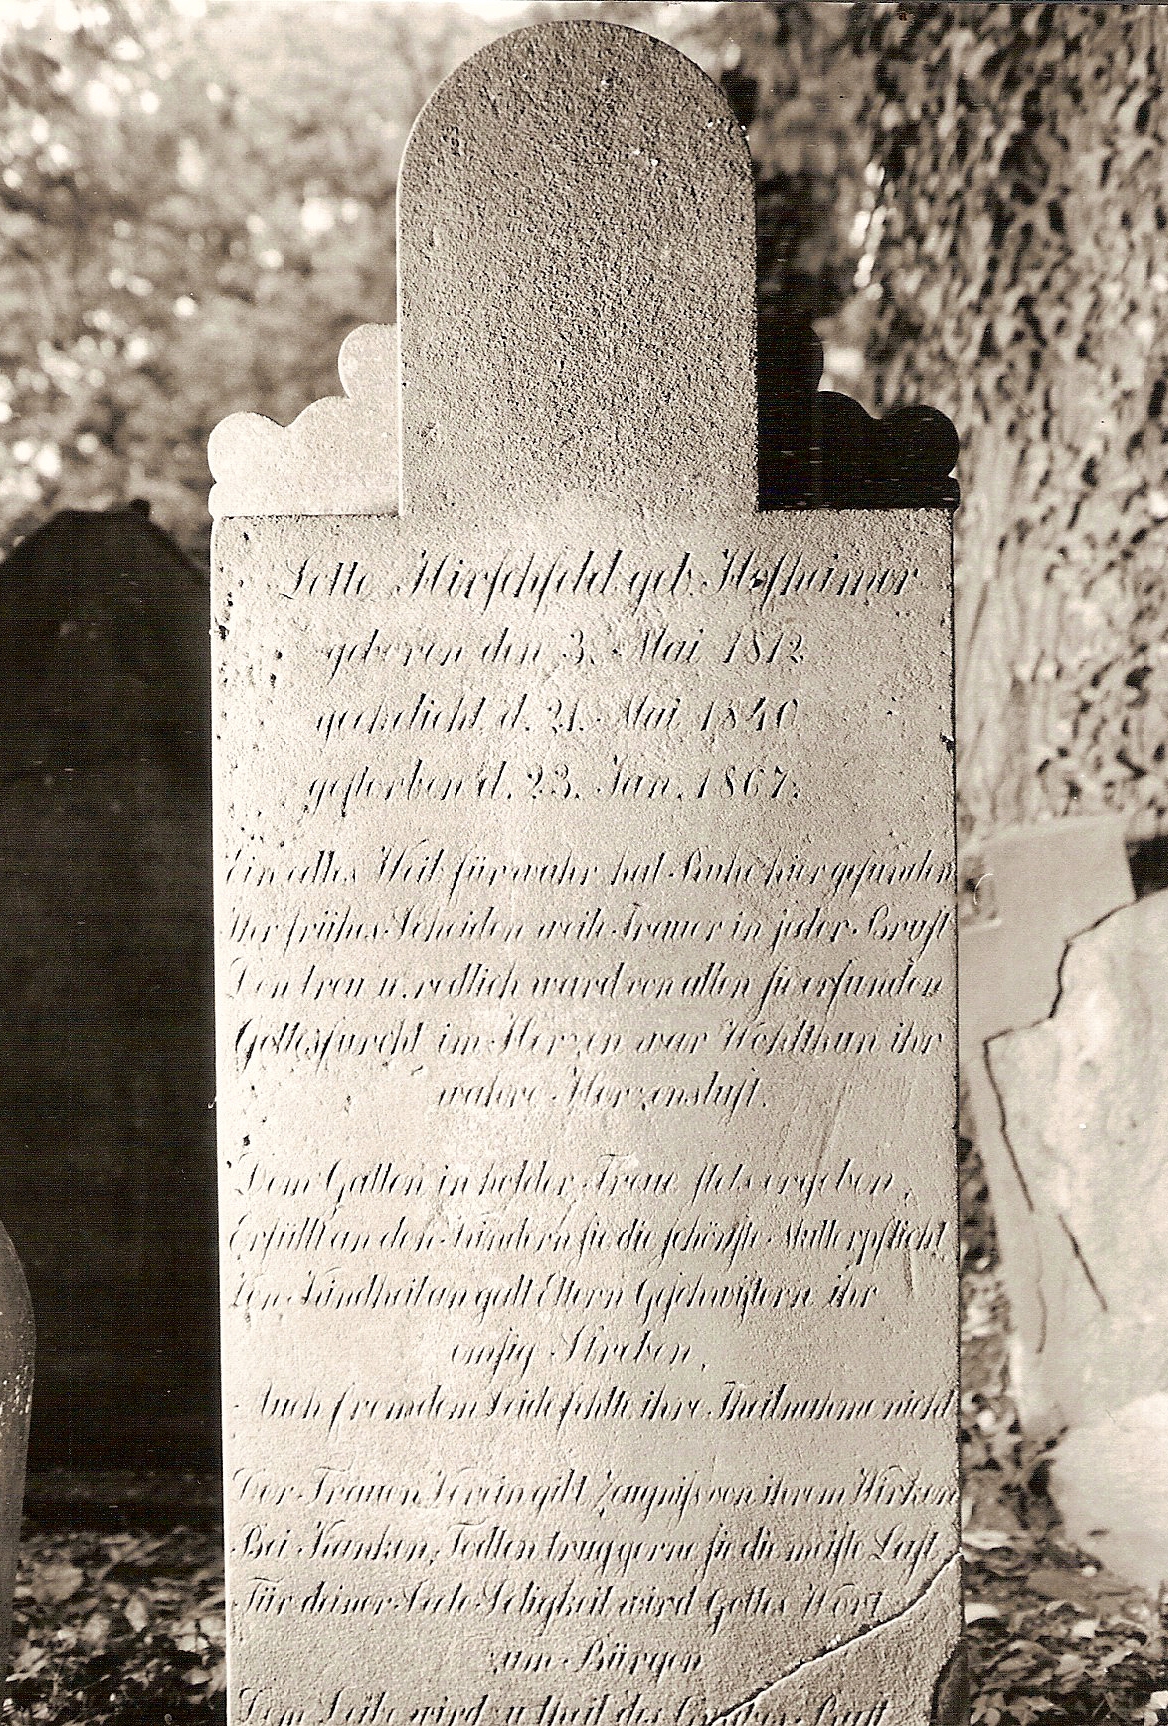 Lotte Hirschfeld geb. Hofheimer
geboren den 3. Mai 1812
geehelicht d. 21. Mai 1840
gestorben d. 23. Jan. 1867.
Ein edles Weib fürwahr hat Ruhe hier gefunden
Der frühes Scheiden weih Trauer in jeder Brust
Den treu u. redlich ward von allen sie erfunden
Gottesfurcht im Herzen war Wohlthun ihr
wahre Herzenslust.
Dem Gatten in holder Treue stets ergeben,
Erfüllt an den Kindern sie die schönste Mutterpflicht
Von Kindheit an galt Eltern Geschwistern ihr
emsig Streben,
Auch fremdem Leide fehlte ihre Theilnahme nicht
Der Frauen Verein gibt Zeugniß von ihrem Wirken
Bei Kranken, Todten trug gerne sie die meiste Last
Für deiner Seele Seligkeit wird Gottes Wort
zum Bürgen
Dem Leibe wird zu theil des Grabes